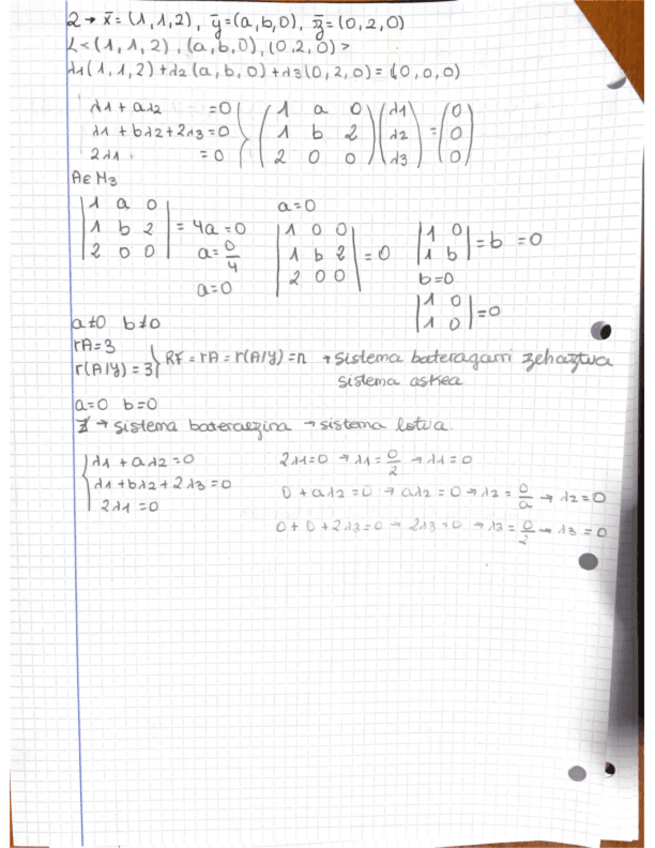 2 → x̄ = (1,1,2), ȳ = (a,b,0), z̄ = (0,2,0)
L < (1,1,2), (a,b,0), (0,2,0) >
λ1(1,1,2) + λ2(a,b,0) + λ3(0,2,0) = (0,0,0)
λ1 + aλ2 = 0
λ1 + bλ2 + 2λ3 = 0
2λ1 = 0
(1 a 0) (λ1) (0)
(1 b 2) (λ2) = (0)
(2 0 0) (λ3) (0)
A∈M3
|1 a 0|
|1 b 2| = 4a = 0
|2 0 0|
a = 0/4
a = 0
a = 0
|1 0 0|
|1 b 2| = 0
|2 0 0|
|1 0|
|1 b| = b = 0
b = 0
|1 0|
|1 0| = 0
a≠0 b≠0
rA = 3
r(A/Y) = 3
RF = rA = r(A/Y) = n → sistema bateragarri zehaztua
sistema askea
a=0 b=0
∄ → sistema bateraezina → sistema lotua.
λ1 + aλ2 = 0
λ1 + bλ2 + 2λ3 = 0
2λ1 = 0
2λ1 = 0 → λ1 = 0/2 → λ1 = 0
0 + aλ2 = 0 → aλ2 = 0 → λ2 = 0/a → λ2 = 0
0 + 0 + 2λ3 = 0 → 2λ3 = 0 → λ3 = 0/2 → λ3 = 0